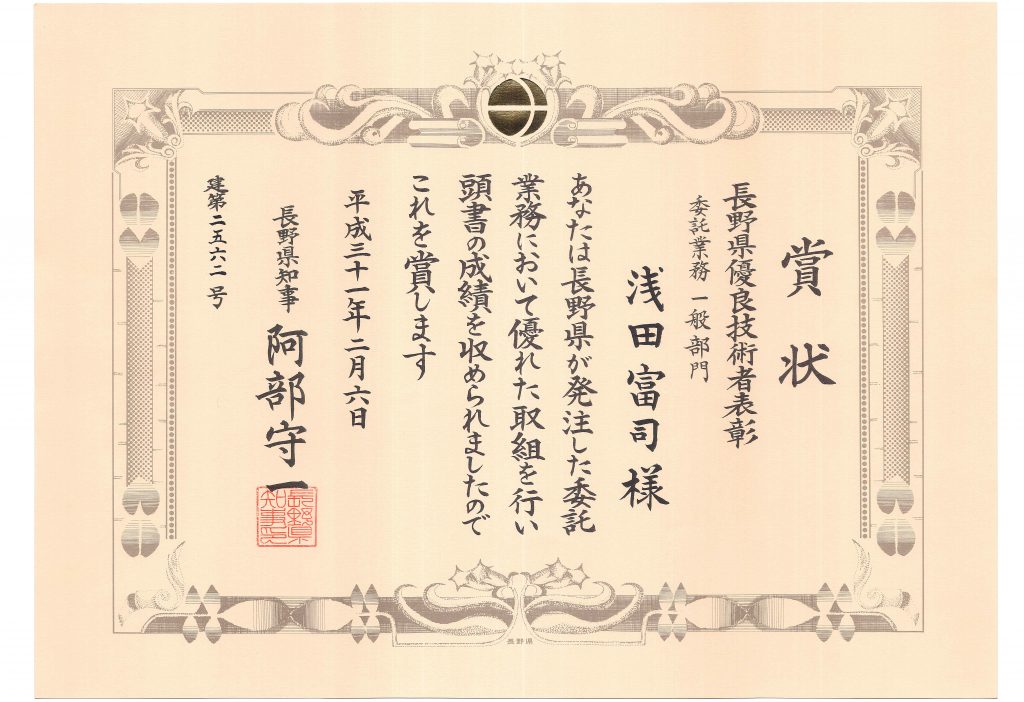 賞状
長野県優良技術者表彰
委託業務 一般部門
浅田富司様
あなたは長野県が発注した委託
業務において優れた取組を行い
頭書の成績を収められましたので
これを賞します
平成三十一年二月六日
長野県知事 阿部守一
長野県知事印
建第二五六二号
長野県